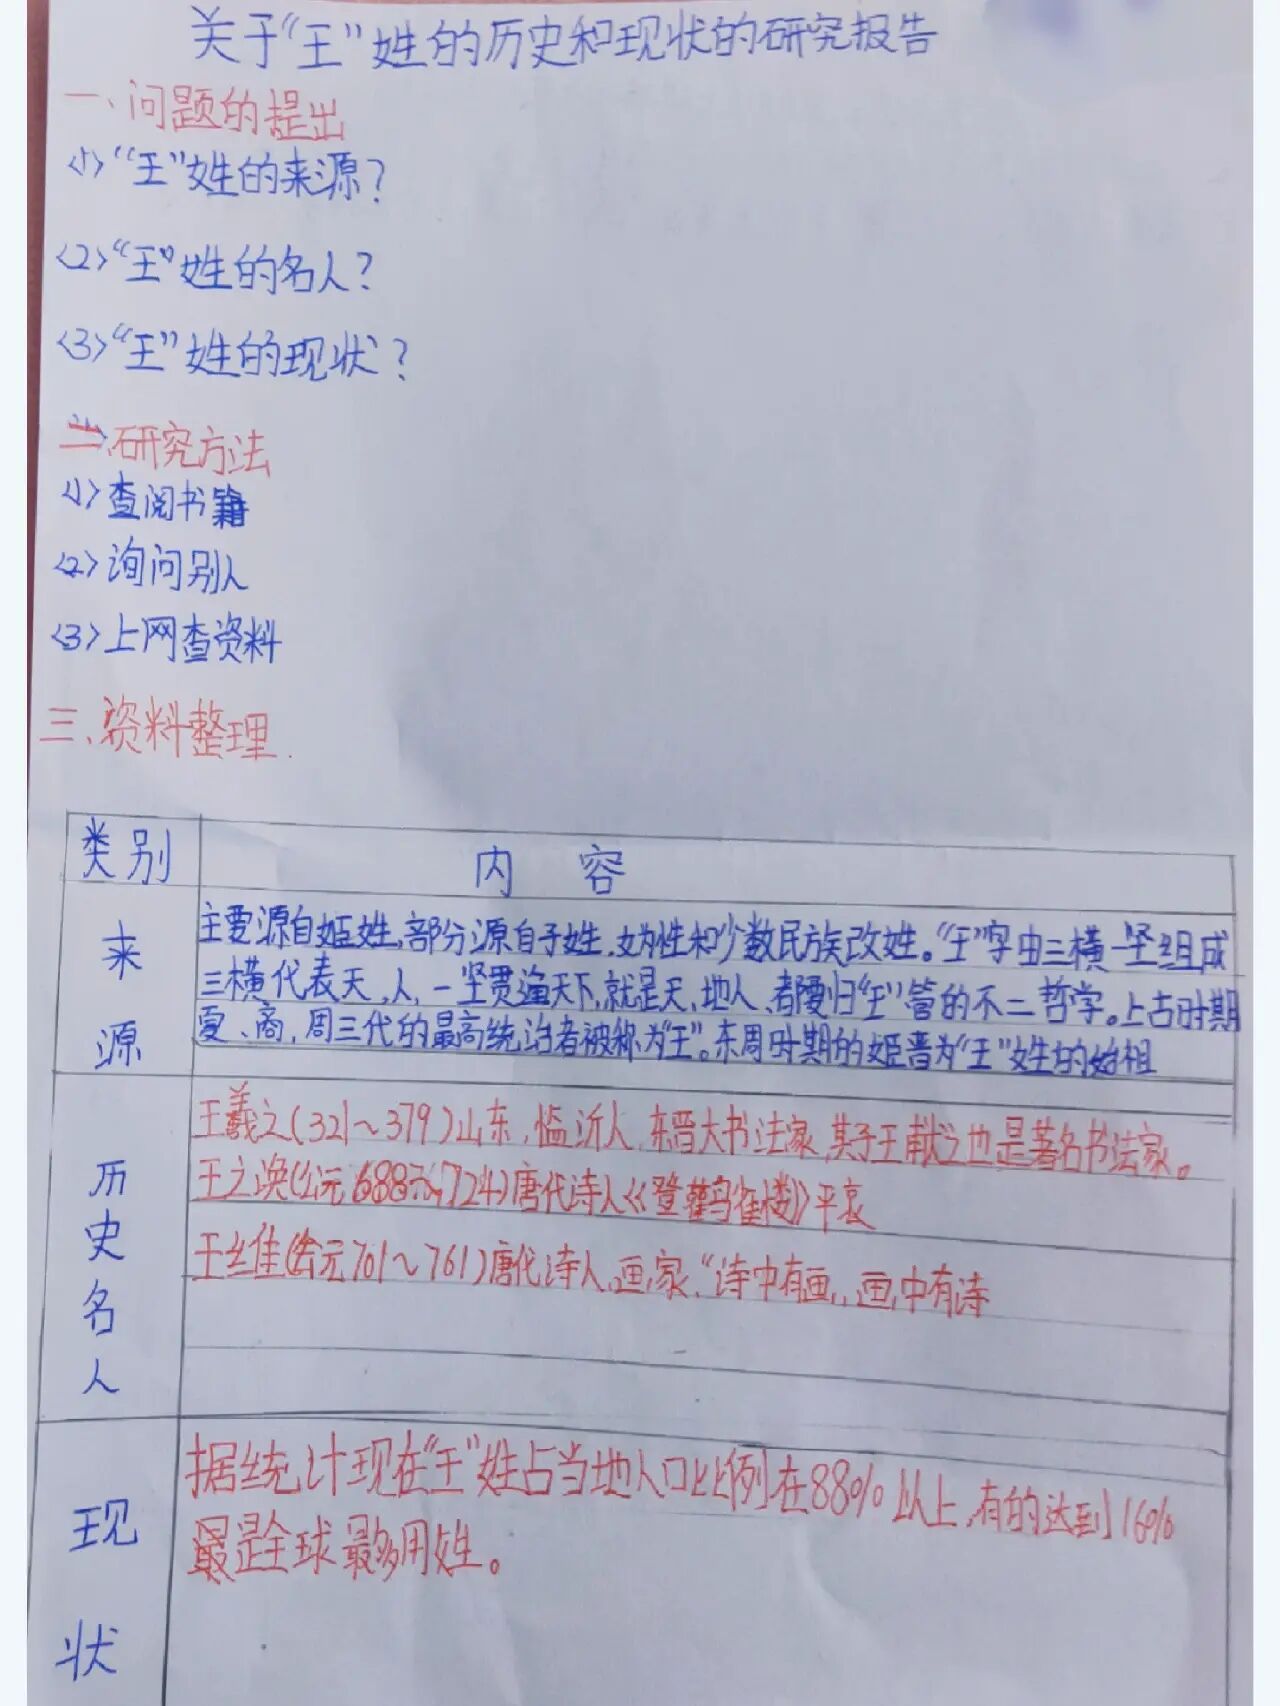 关于“王”姓的历史和现状的研究报告
一、问题的提出
<1>“王”姓的来源?
<2>“王”姓的名人?
<3>“王”姓的现状?
二、研究方法
<1>查阅书籍
<2>询问别人
<3>上网查资料
三、资料整理.
类别 内 容
来源
主要源自姬姓、部分源自子姓、妫姓和少数民族改姓。“王”字由三横一竖组成
三横代表天,人,一竖贯通天下,就是天、地人、都要归“王”管的不二哲学。上古时期
夏、商,周三代的最高统治者被称为“王”。东周时期的姬晋为“王”姓的始祖
历史名人
王羲之(321~379)山东,临沂人,东晋大书法家,其子王献之也是著名书法家。
王之涣(公元688元724)唐代诗人《登鹳雀楼》平哀
王维(公元701~761)唐代诗人、画家,“诗中有画,画中有诗
现状
据统计现在“王”姓占当地人口比例在88%以上,有的达到16%
最是全球最多用姓。